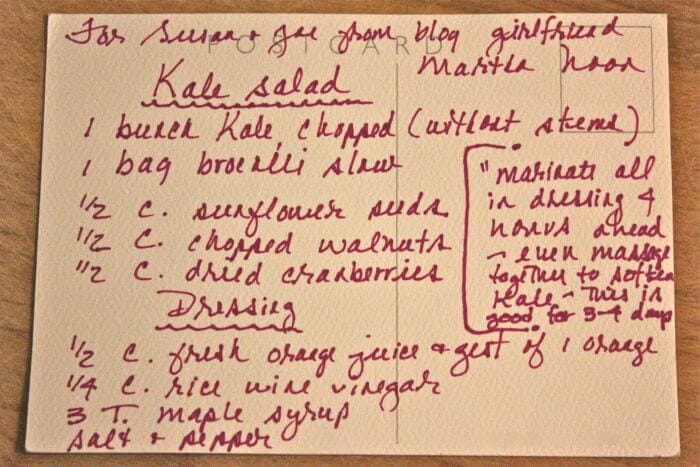 For Susan & Joe from blog girlfriend
POSTCARD
Martha Noon
Kale salad
1 bunch Kale chopped (without stems)
1 bag brocolli slaw
1/2 c. sunflower seeds
1/2 c. chopped walnuts
1/2 c. dried cranberries
"marinate all
in dressing 4
hours ahead
- even massage
together to soften
Kale - This is
good for 3-4 days
Dressing
1/2 c. fresh orange juice & zest of 1 orange
1/4 c. rice wine vinegar
3 T. maple syrup
salt & pepper